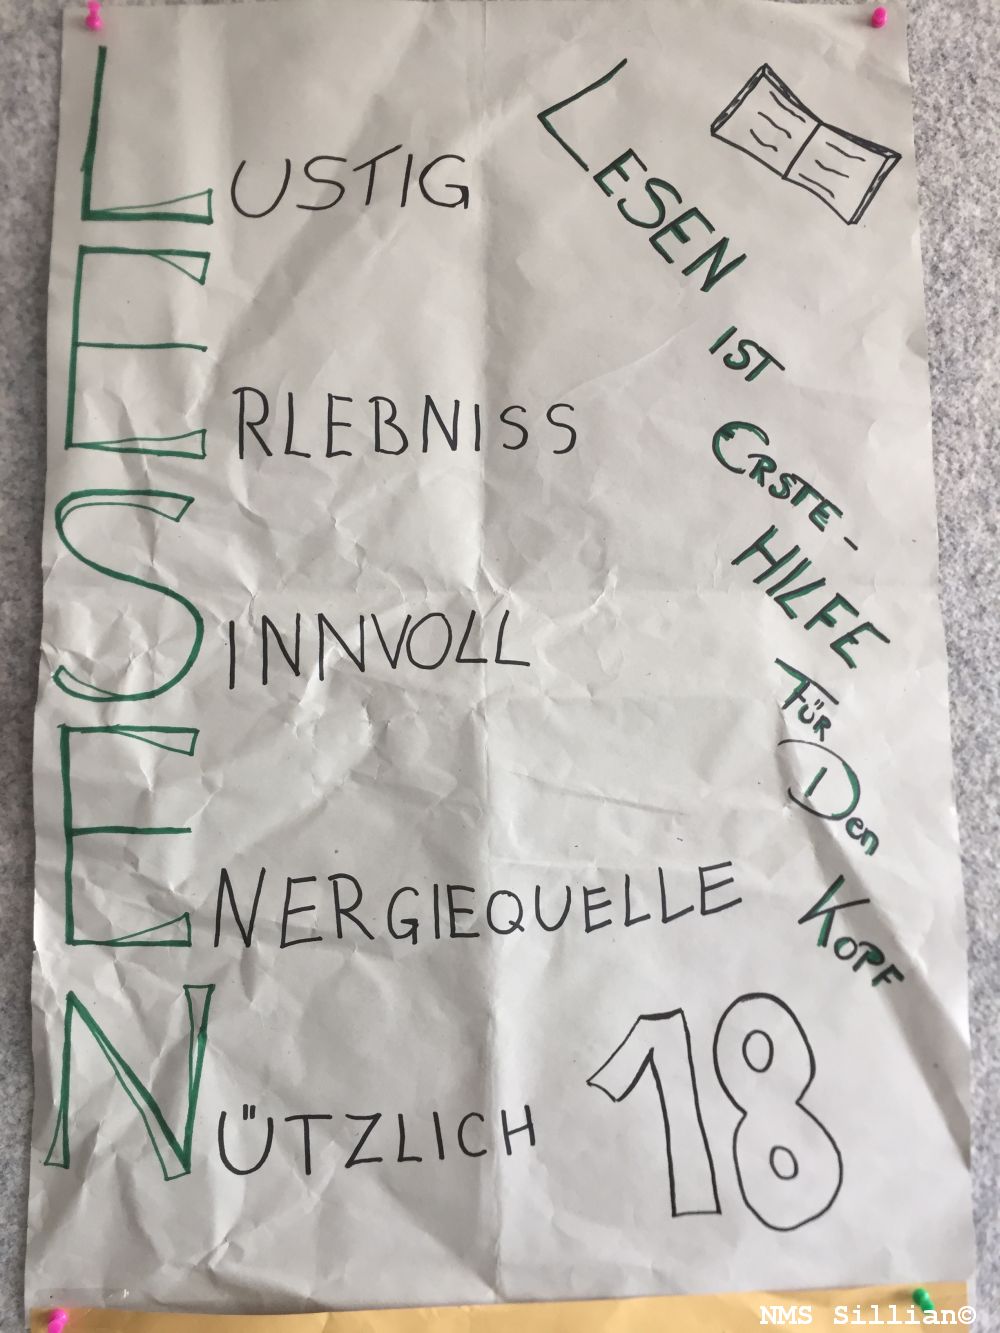 LUSTIG
ERLEBNISS
SINNVOLL
ENERGIEQUELLE
NÜTZLICH
LESEN
IST
ERSTE-
HILFE
FÜR
DEN
KOPF
18
NMS Sillian©